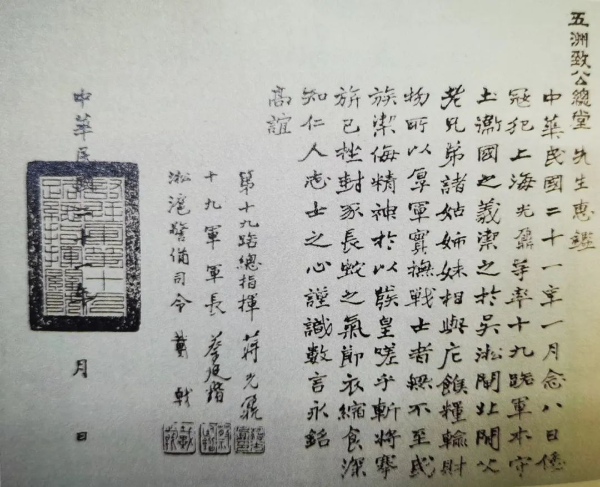 五洲致公總堂 先生惠鑑
中華民國二十一年一月念八日倭
寇犯上海光鼐等率十九路軍本守
土衛國之義禦之於吳淞閘北閒父
老兄弟諸姑姊妹相與庀餱糧輸財
物所以厚軍實撫戰士者無不至民
族禦侮精神於以皇嗟乎斬將搴
旂已挫封豕長蛇之氣節衣縮食深
知仁人志士之心謹識數言永銘
高誼
第十九路總指揮 蔣光鼐
十九軍軍長 蔡廷鍇
淞滬警備司令 戴戟
中華民國二十一年 月 日